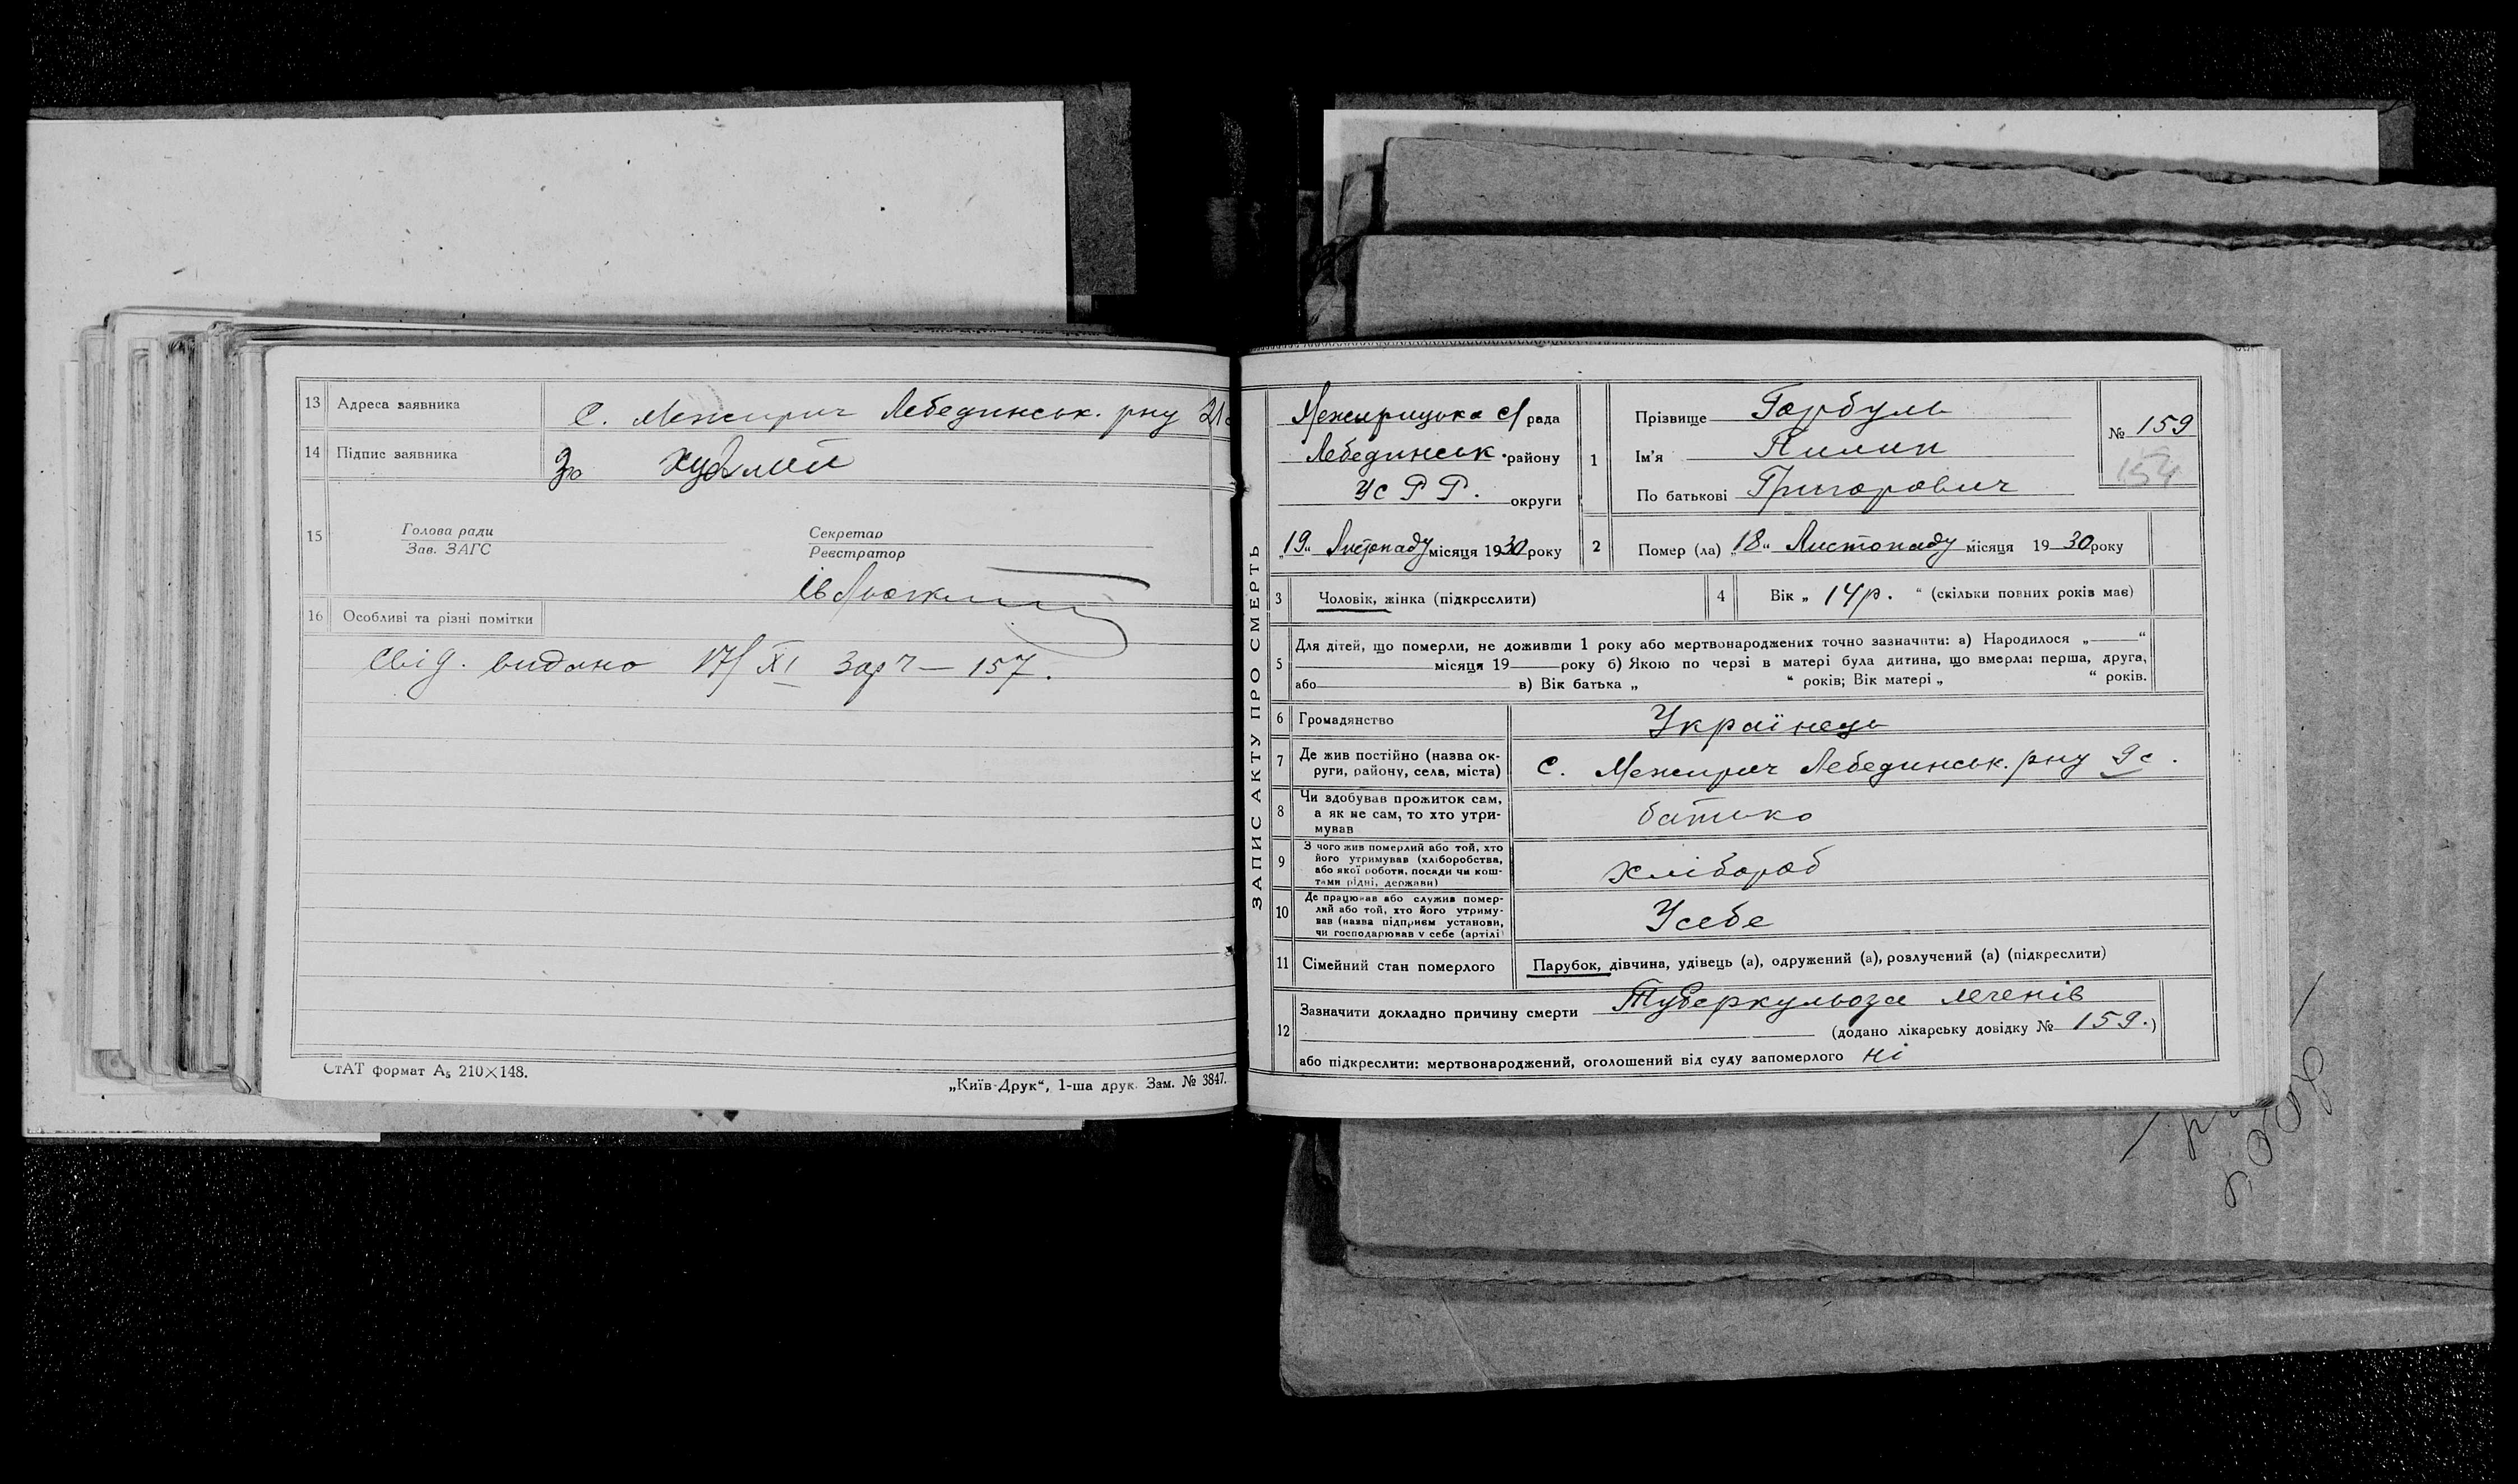 13 Адреса заявника С. Межирич Лебединськ. рну
14 Підпис заявника За Худлий
15 Голова ради
Зав. ЗАГС
Секретар
Реєстратор
16 Особливі та різні помітки
Свід. видано 17/XI Зар ч — 157.
СтАТ формат А₅ 210×148.
„Київ-Друк“, 1-ша друк. Зам. № 3847.
ЗАПИС АКТУ ПРО СМЕРТЬ
Межирицька с/рада
Лебединськ. району
УСРР. округи
„19“ Листопаду місяця 1930 року
1 Прізвище Гарбуль
Ім'я Пилип
По батькові Григорович
№ 159
154
2 Помер (ла) „18“ Листопаду місяця 1930 року
3 Чоловік, жінка (підкреслити)
4 Вік „ 14 р. “ (скільки повних років має)
5 Для дітей, що померли, не доживши 1 року або мертвонароджених точно зазначити: а) Народилося „ “
місяця 19 року б) Якою по черзі в матері була дитина, що вмерла: перша, друга,
або в) Вік батька „ “ років; Вік матері „ “ років.
6 Громадянство Українець
7 Де жив постійно (назва ок-
руги, району, села, міста) С. Межирич Лебединськ. рну
8 Чи здобував прожиток сам,
а як не сам, то хто утри-
мував батько
9 З чого жив померлий або той, хто
його утримував (хліборобства,
або якої роботи, посади чи кош-
тами рідні, держави) хлібороб
10 Де працював або служив помер-
лий або той, хто його утриму-
вав (назва підприєм установи,
чи господарював у себе (артілі) Усебе
11 Сімейний стан померлого Парубок, дівчина, удівець (а), одружений (а), розлучений (а) (підкреслити)
12 Зазначити докладно причину смерти Туберкульоза легенів
(додано лікарську довідку № 159.)
або підкреслити: мертвонароджений, оголошений від суду запомерлого ні